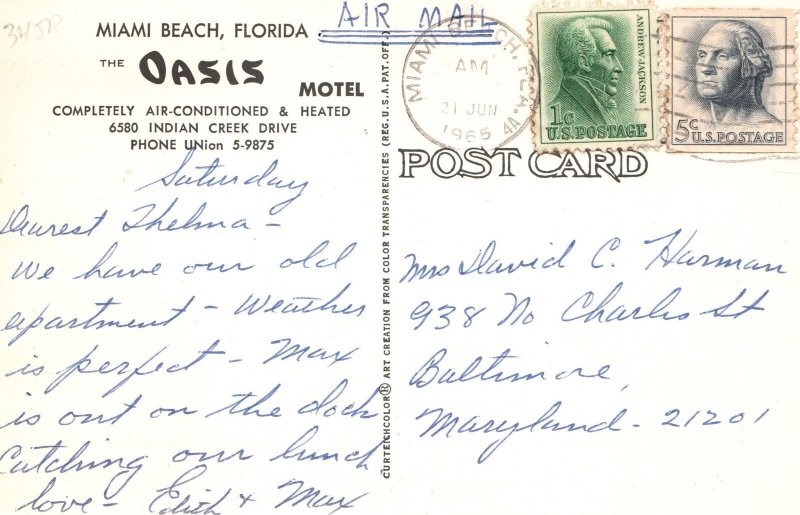 MIAMI BEACH, FLORIDA
THE OASIS MOTEL
COMPLETELY AIR-CONDITIONED & HEATED
6580 INDIAN CREEK DRIVE
PHONE UNion 5-9875
Saturday
Dearest Thelma -
We have our old
apartment - Weather
is perfect - Max
is out on the dock
Catching our lunch
love - Edith & Max
CURTEICHCOLOR® ART CREATION FROM COLOR TRANSPARENCIES (REG. U.S.A. PAT. OFF.)
AIR MAIL
MIAMI BEACH, FLA.
AM
21 JUN
1965
4A
ANDREW JACKSON
1c
U.S. POSTAGE
5c
U.S. POSTAGE
POST CARD
Mrs David C. Harman
938 No Charles St
Baltimore,
Maryland - 21201